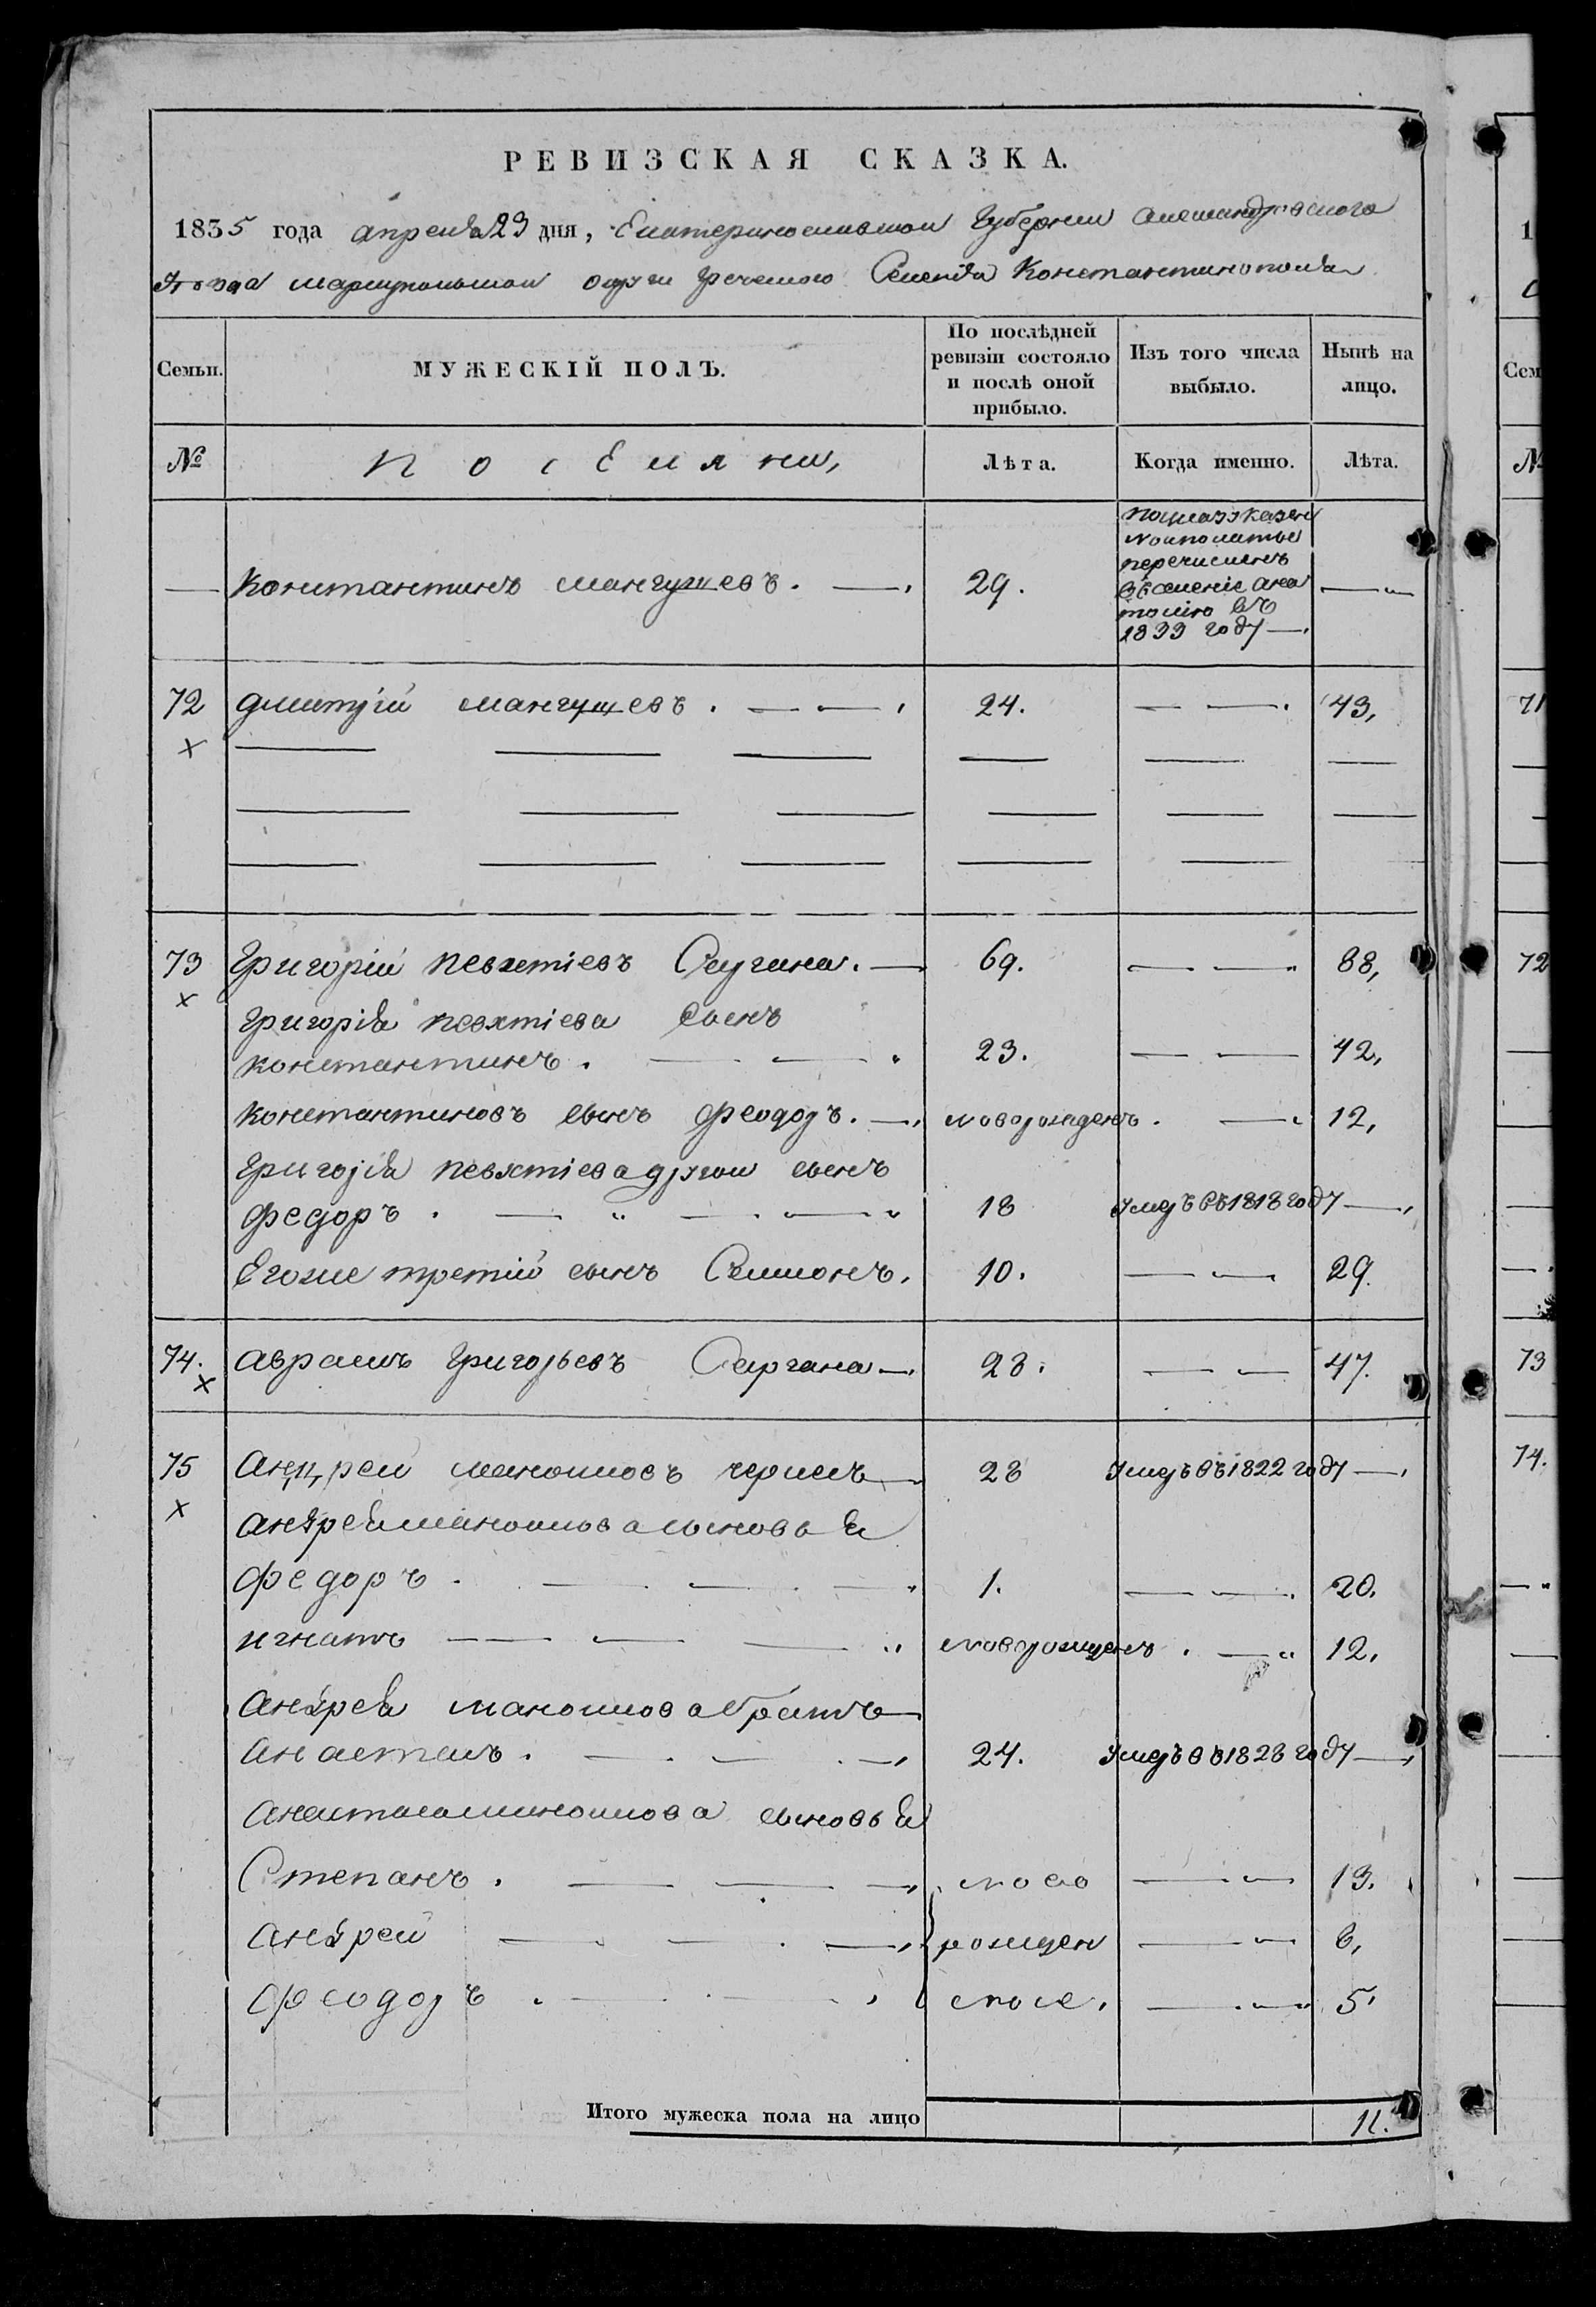 РЕВИЗСКАЯ СКАЗКА.
1835 года апреля 23 дня, Екатеринославской Губернии Александровского
уезда мариупольской округи греческого Селенія Константинополя
Семьи. МУЖЕСКІЙ ПОЛЪ. По послѣдней ревизіи состояло и послѣ оной прибыло. Изъ того числа выбыло. Нынѣ на лицо.
№ Поселяни, Лѣта. Когда именно. Лѣта.
Константинъ мангушевъ. 29. перечисленъ въ селеніе въ 1833 году
72 дмитрій мангушевъ. 24. 43,
х
73 Григорій певхтіевъ 69. 88,
х
Григорія певхтіева сынъ
константинъ. 23. 42,
константиновъ сынъ феодоръ. новорожденъ. 12,
Григорія певхтіева другой сынъ
федоръ. 18 умеръ въ 1818 году
Егоже третій сынъ Семионъ. 10. 29.
74. аврамъ Григорьевъ 28. 47.
х
75 андрей маноиловъ 28 умеръ въ 1822 году
х
андрея маноилова сыновья
федоръ. 1. 20.
игнатъ новорожденъ. 12,
андрея маноилова братъ
анастасъ. 24. умеръ въ 1828 году
анастаса маноилова сыновья
Степанъ. ново 13.
андрей рожден 6,
феодоръ ные. 5
Итого мужеска пола на лицо 11.
1
С
Сем
№
71
72
73
74.